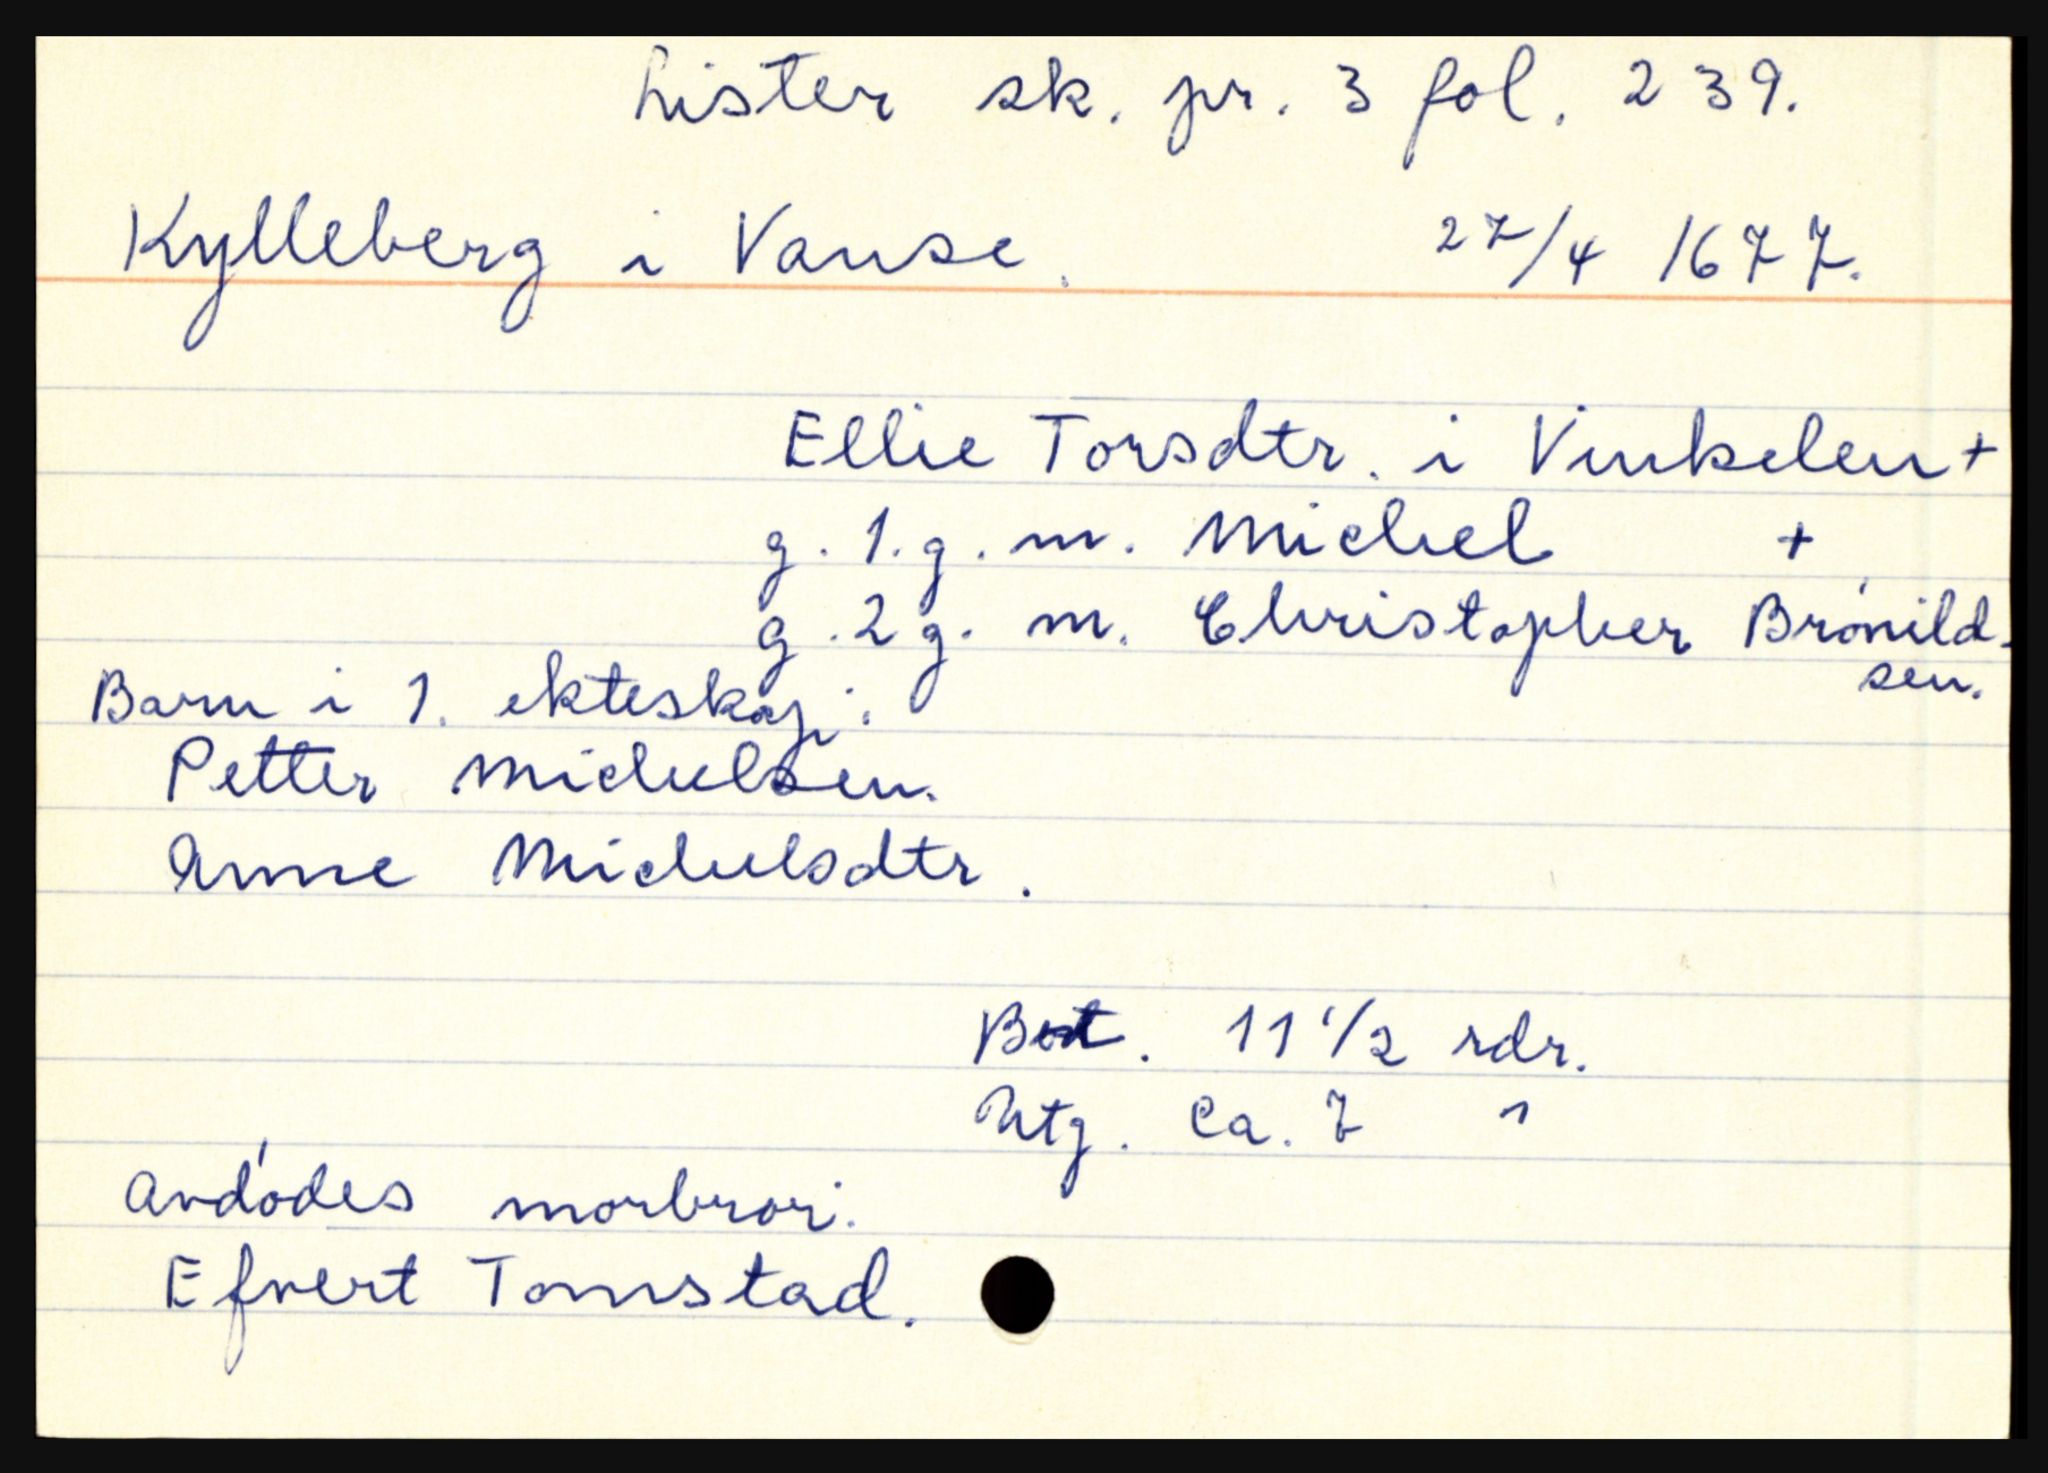 Lister sk. pr. 3 fol. 239.
Kylleberg i Vanse. 27/4 1677.
Ellie Torsdtr. i Vinkelen +
g. 1. g. m. Michel +
g. 2 g. m. Christopher Brónild-
sen.
Barn i 1. ekteskap:
Petter Michelsen.
Anne Michelsdtr.
Bort. 11 1/2 rdr.
Utg. Ca. 7 "
Avdódes morbror:
Efvert Tomstad.